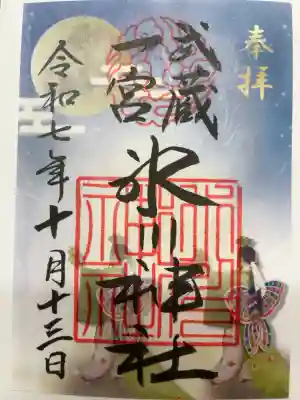 奉拝
武蔵
一宮
氷川神社
令和七年十月十三日